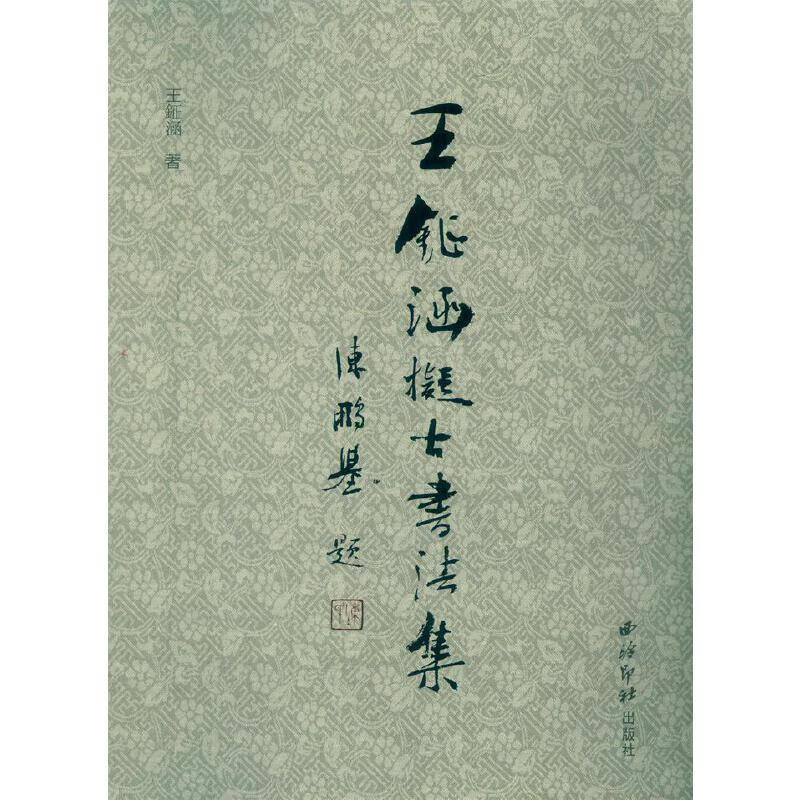 王鉦涵擬古書法集
陳鵬舉 題
王鉦涵 著
西泠印社出版社